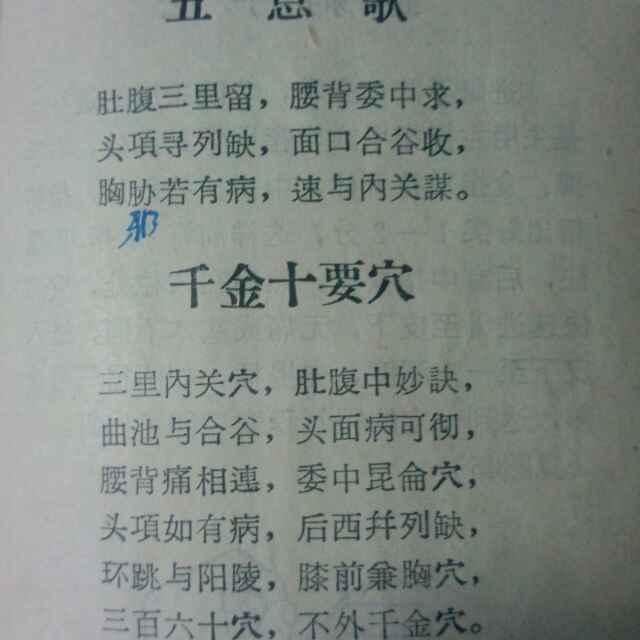 五总歌
肚腹三里留，腰背委中求，
头項寻列缺，面口合谷收，
胸胁若有病，速与內关謀。
千金十要穴
三里內关穴，肚腹中妙訣，
曲池与合谷，头面病可彻，
腰背痛相連，委中昆侖穴，
头項如有病，后西幷列缺，
环跳与阳陵，膝前兼胸穴，
三百六十穴，不外千金穴。